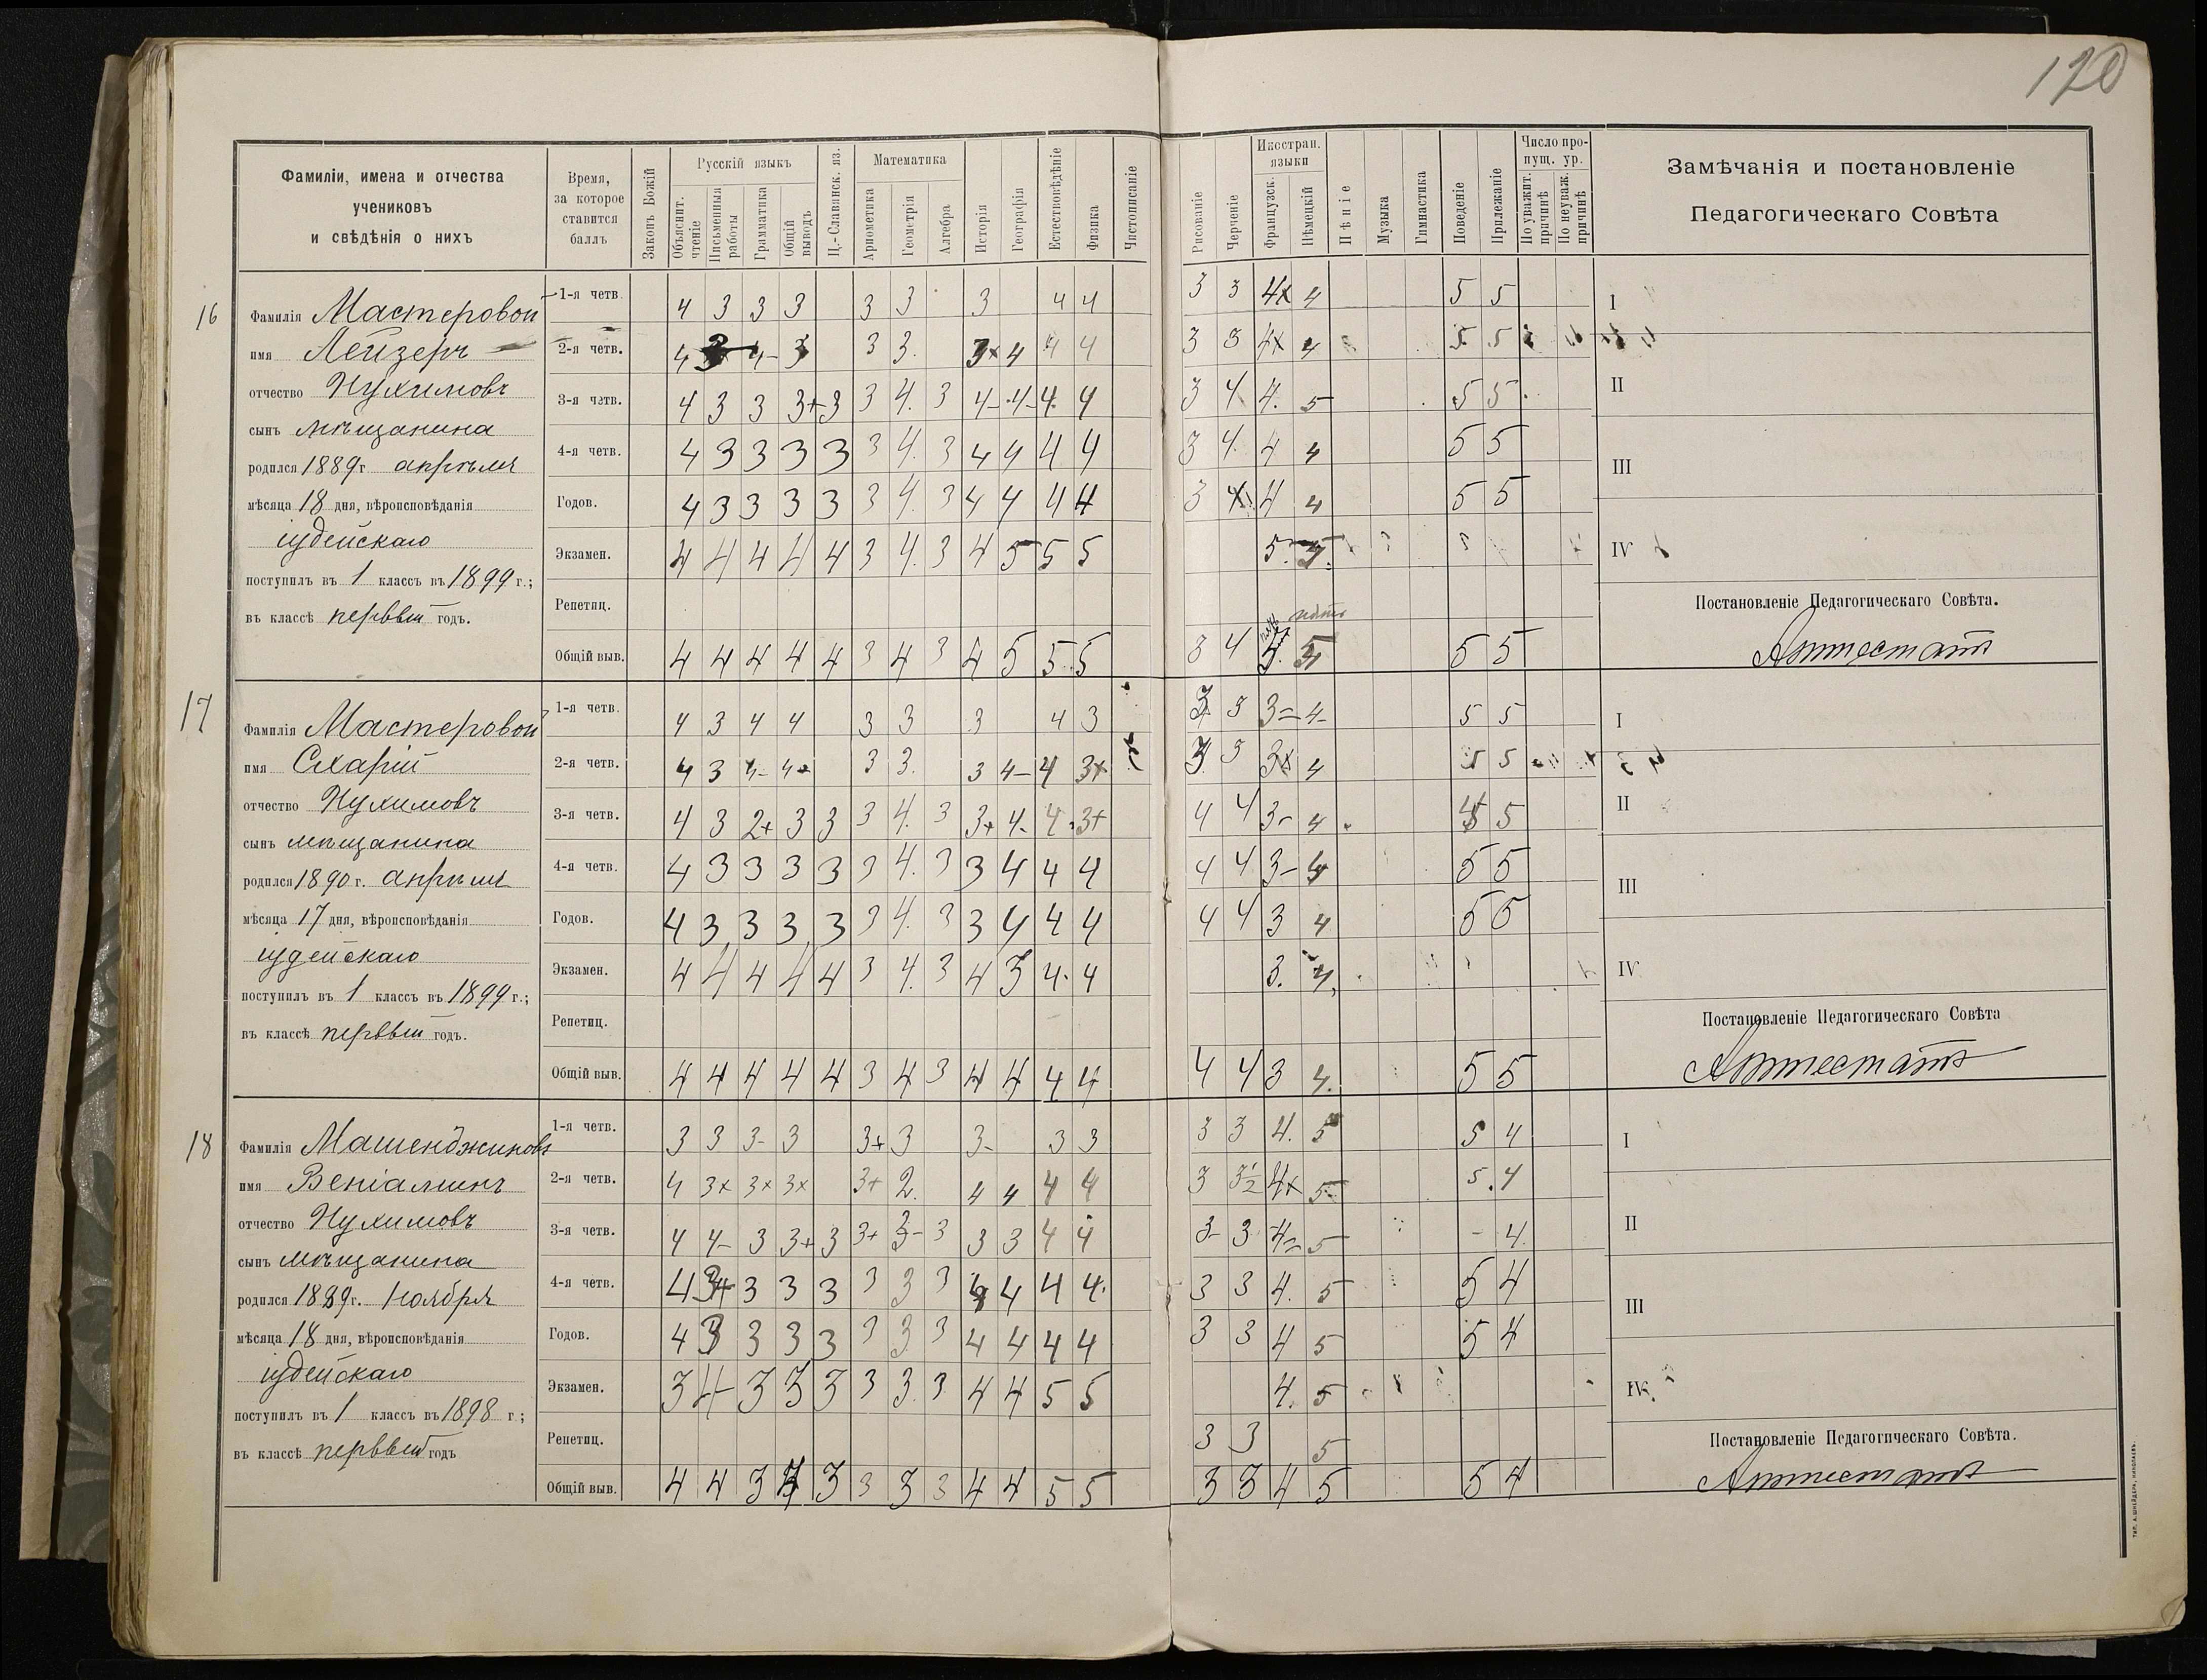 120
Фамиліи, имена и отчества
учениковъ
и свѣдѣнія о нихъ
Время,
за которое
ставится
баллъ
Законъ Божій
Русскій языкъ
Объяснит. чтеніе
Письменныя работы
Грамматика
Общій выводъ
Ц.-Славянск. яз.
Математика
Ариѳметика
Геометрія
Алгебра
Исторія
Географія
Естествовѣдѣніе
Физика
Чистописаніе
Рисованіе
Черченіе
Иностран. языки
Французск.
Нѣмецкій
Пѣніе
Музыка
Гимнастика
Поведеніе
Прилежаніе
Число пропущ. ур.
По уважит. причинѣ
По неуваж. причинѣ
Замѣчанія и постановленіе
Педагогическаго Совѣта
16
Фамилія Мастеровой
имя Лейзеръ
отчество Нухимовъ
сынъ мѣщанина
родился 1889 г. апрѣля
мѣсяца 18 дня, вѣроисповѣданія
іудейскаго
поступилъ въ 1 классъ въ 1899 г.;
въ классѣ первый годъ.
1-я четв. 4 3 3 3 3 3 3 4 4 3 3 4х 4 5 5
I
2-я четв. 4 3 4- 3 3 3. 3х 4 4 4 3 3 4х 4 5 5
3-я четв. 4 3 3 3+ 3 3 4. 3 4- 4- 4. 4 3 4 4. 5 5 5
II
4-я четв. 4 3 3 3 3 3 4. 3 4 4 4 4 3 4. 4 4 5 5
III
Годов. 4 3 3 3 3 3 4. 3 4 4 4 4 3 4. 4 4 5 5
Экзамен. 4 4 4 4 4 3 4. 3 4 5 5 5 5.
IV
Репетиц.
Постановленіе Педагогическаго Совѣта.
Общій выв. 4 4 4 4 4 3 4 3 4 5 5 5 3 4 5 5
Аттестатъ
17
Фамилія Мастеровой
имя Схарій
отчество Нухимовъ
сынъ мѣщанина
родился 1890 г. апрѣля
мѣсяца 17 дня, вѣроисповѣданія
іудейскаго
поступилъ въ 1 классъ въ 1899 г.;
въ классѣ первый годъ.
1-я четв. 4 3 4 4 3 3 3 4 3 3 3 3= 4- 5 5
I
2-я четв. 4 3 4- 4- 3 3. 3 4- 4 3х 3 3 3х 4 5 5
3-я четв. 4 3 2+ 3 3 3 4. 3 3+ 4- 4 3+ 4 4 3- 4 5
II
4-я четв. 4 3 3 3 3 3 4. 3 3 4 4 4 4 4 3- 4 5 5
III
Годов. 4 3 3 3 3 3 4. 3 3 4 4 4 4 4 3 4 5 5
Экзамен. 4 4 4 4 4 3 4. 3 4 3 4. 4 3. 4.
IV
Репетиц.
Постановленіе Педагогическаго Совѣта
Общій выв. 4 4 4 4 4 3 4 3 4 4 4 4 4 4 3 4. 5 5
Аттестатъ
18
Фамилія Машенджиновъ
имя Веніаминъ
отчество Нухимовъ
сынъ мѣщанина
родился 1889 г. Ноября
мѣсяца 18 дня, вѣроисповѣданія
іудейскаго
поступилъ въ 1 классъ въ 1898 г.;
въ классѣ первый годъ
1-я четв. 3 3 3- 3 3+ 3 3- 3 3 3 3 4. 5 5 4
I
2-я четв. 4 3х 3х 3х 3+ 2. 4 4 4 4 3 3½ 4х 5- 5. 4
3-я четв. 4 4- 3 3+ 3 3+ 3- 3 3 3 4 4 3- 3 4= 5 - 4
II
4-я четв. 4 3 3 3 3 3 3 4 4 4 4. 3 3 4. 5 5 4
III
Годов. 4 3 3 3 3 3 3 3 4 4 4 4 3 3 4 5 5 4
Экзамен. 3 4- 3 3 3 3 3. 3 4 4 5 5 4. 5
IV
Репетиц. 3 3 5
Постановленіе Педагогическаго Совѣта.
Общій выв. 4 4 3 3 3 3 3 4 4 5 5 3 3 4 5 5 4
Аттестатъ
ТИП. А. ШНЕЙДЕРА, НИКОЛАЕВЪ.